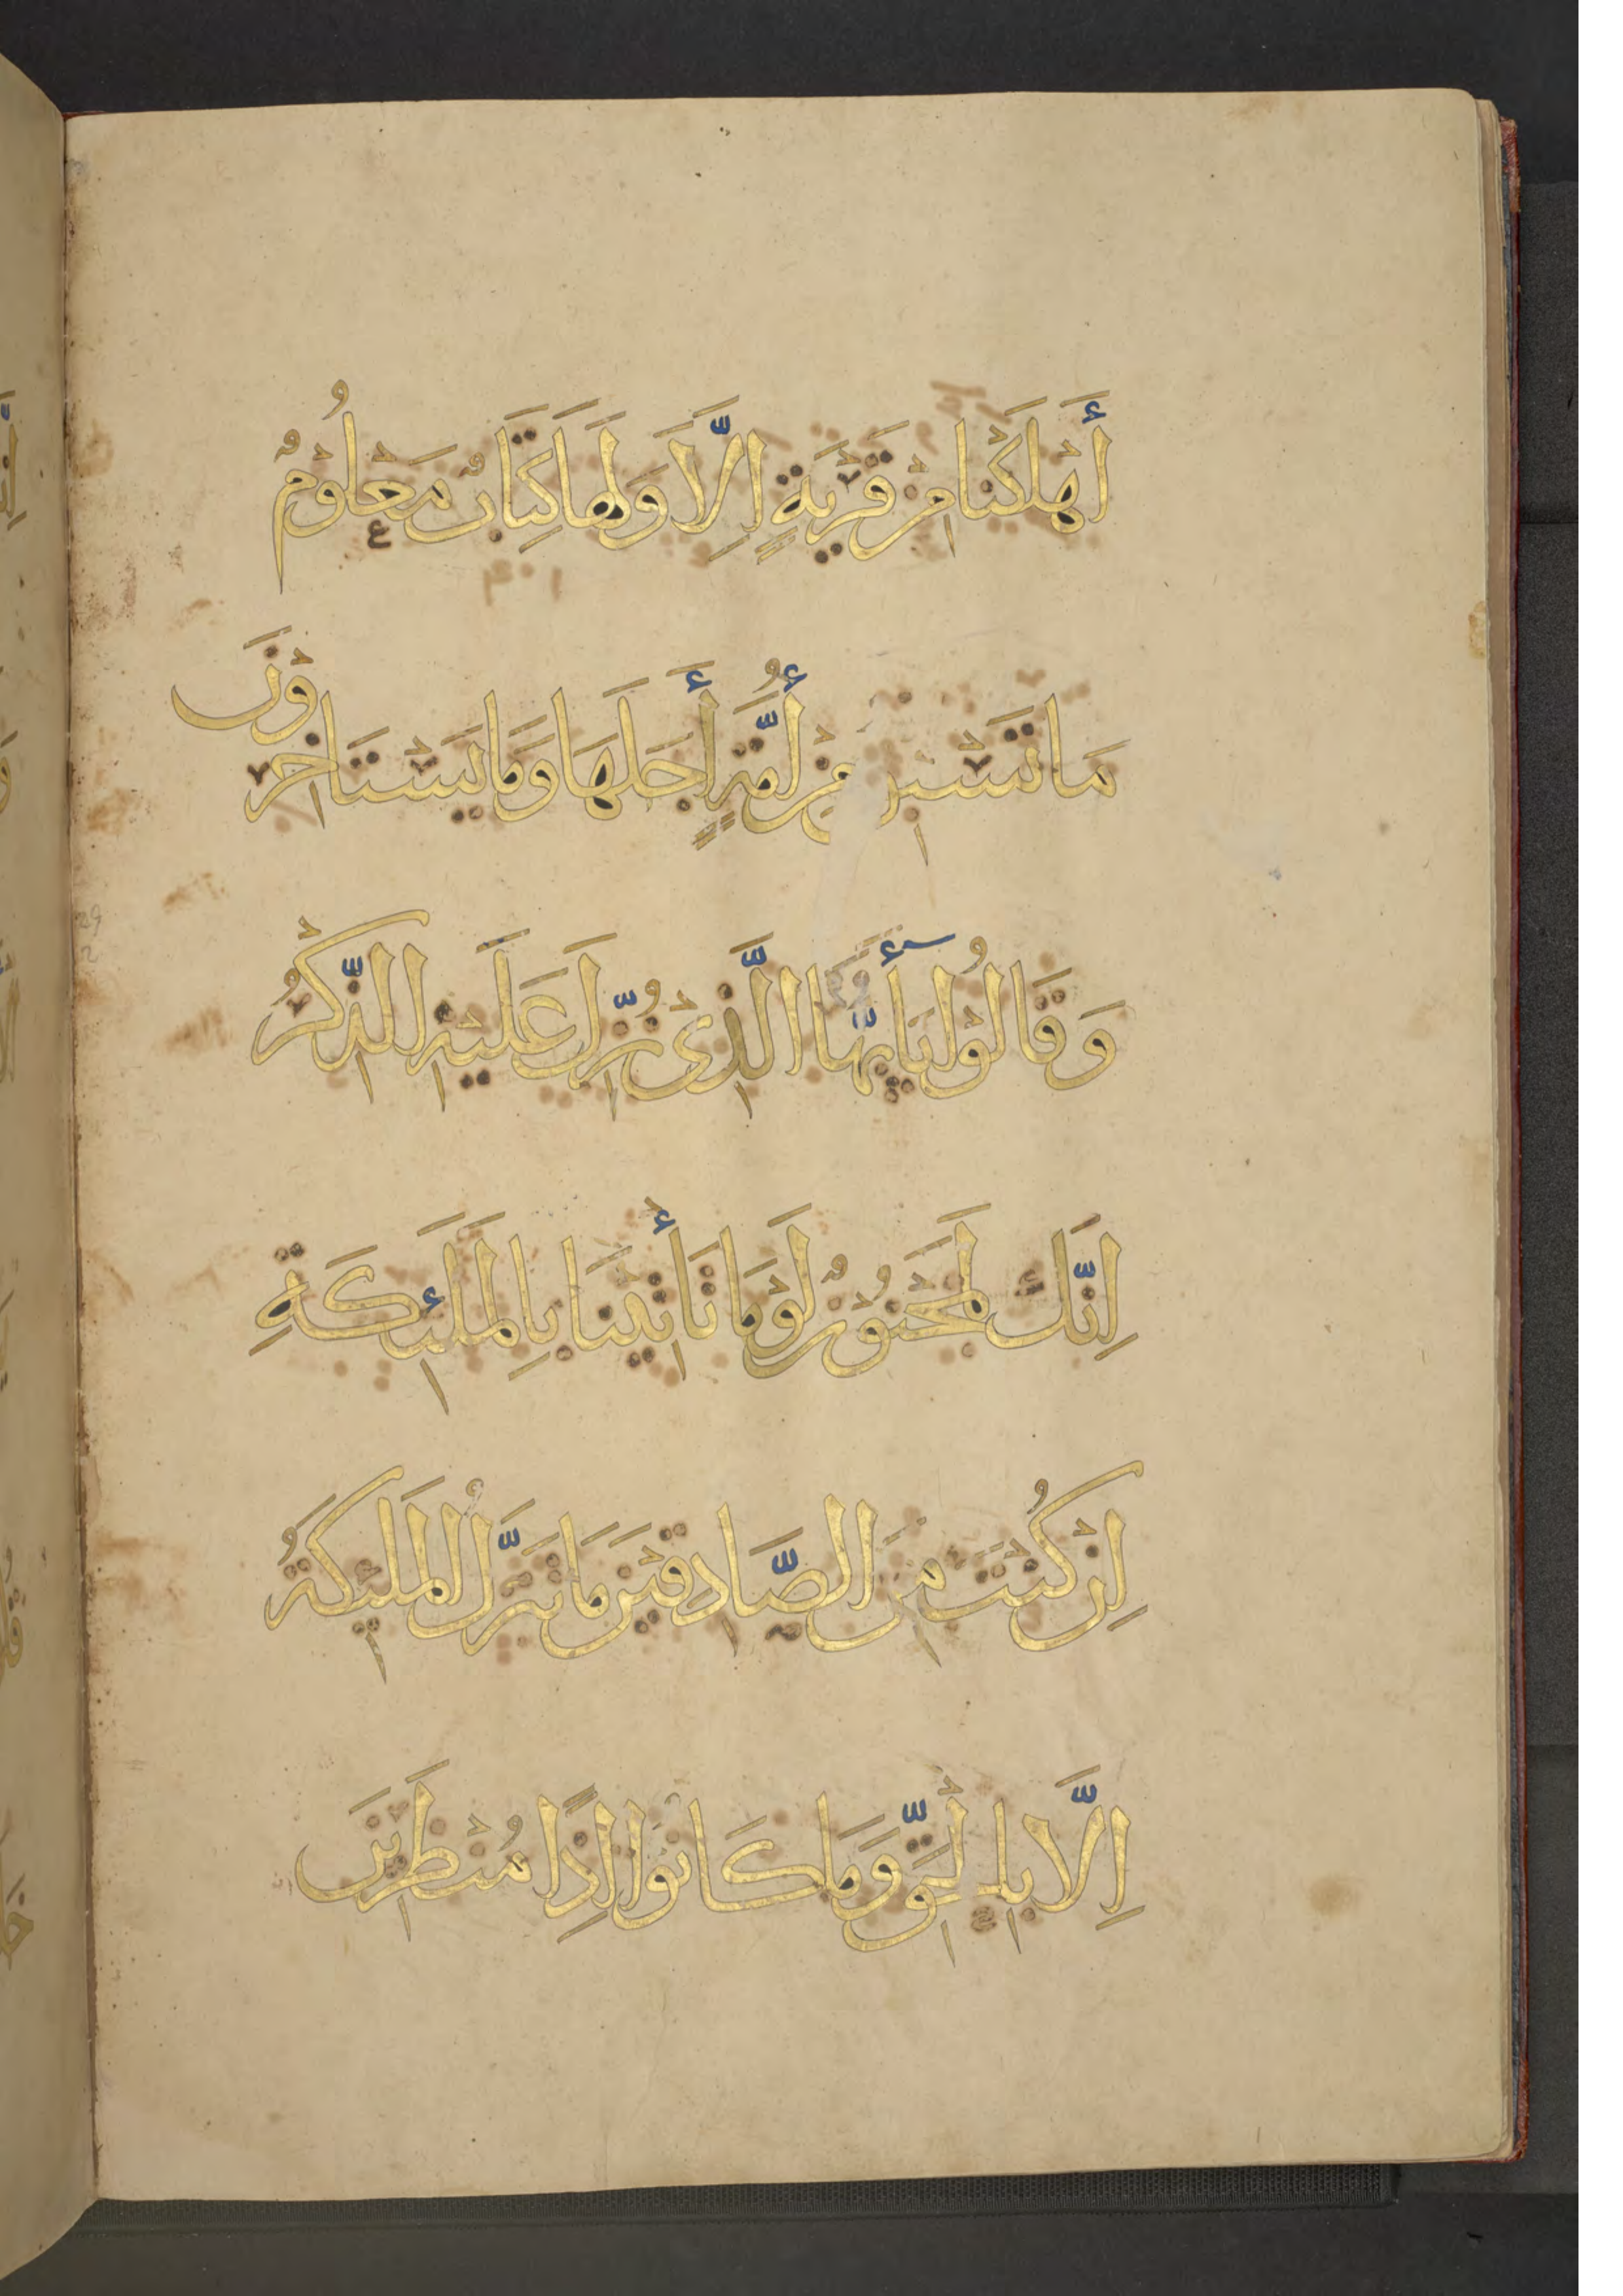 أَهْلَكْنَا مِنْ قَرْيَةٍ اِلَّا وَلَهَا كِتَابٌ مَعْلُومٌ
مَا تَسْبِ مِنْ أُمَّةٍ أَجَلَهَا وَمَا يَسْتَاخِرُوْنَ
وَقَالُوْا يَا أَيُّهَا الَّذِيْ نُزِّلَ عَلَيْهِ الذِّكْرُ
اِنَّكَ لَمَجْنُوْنٌ لَوْمَا تَأْتِيْنَا بِالْمَلَئِكَةِ
اِنْ كُنْتَ مِنَ الصَّادِقِيْنَ مَا نُنَزِّلُ الْمَلَئِكَةَ
اِلَّا بِالْحَقِّ وَمَا كَانُوْا اِذًا مُنْظَرِيْنَ